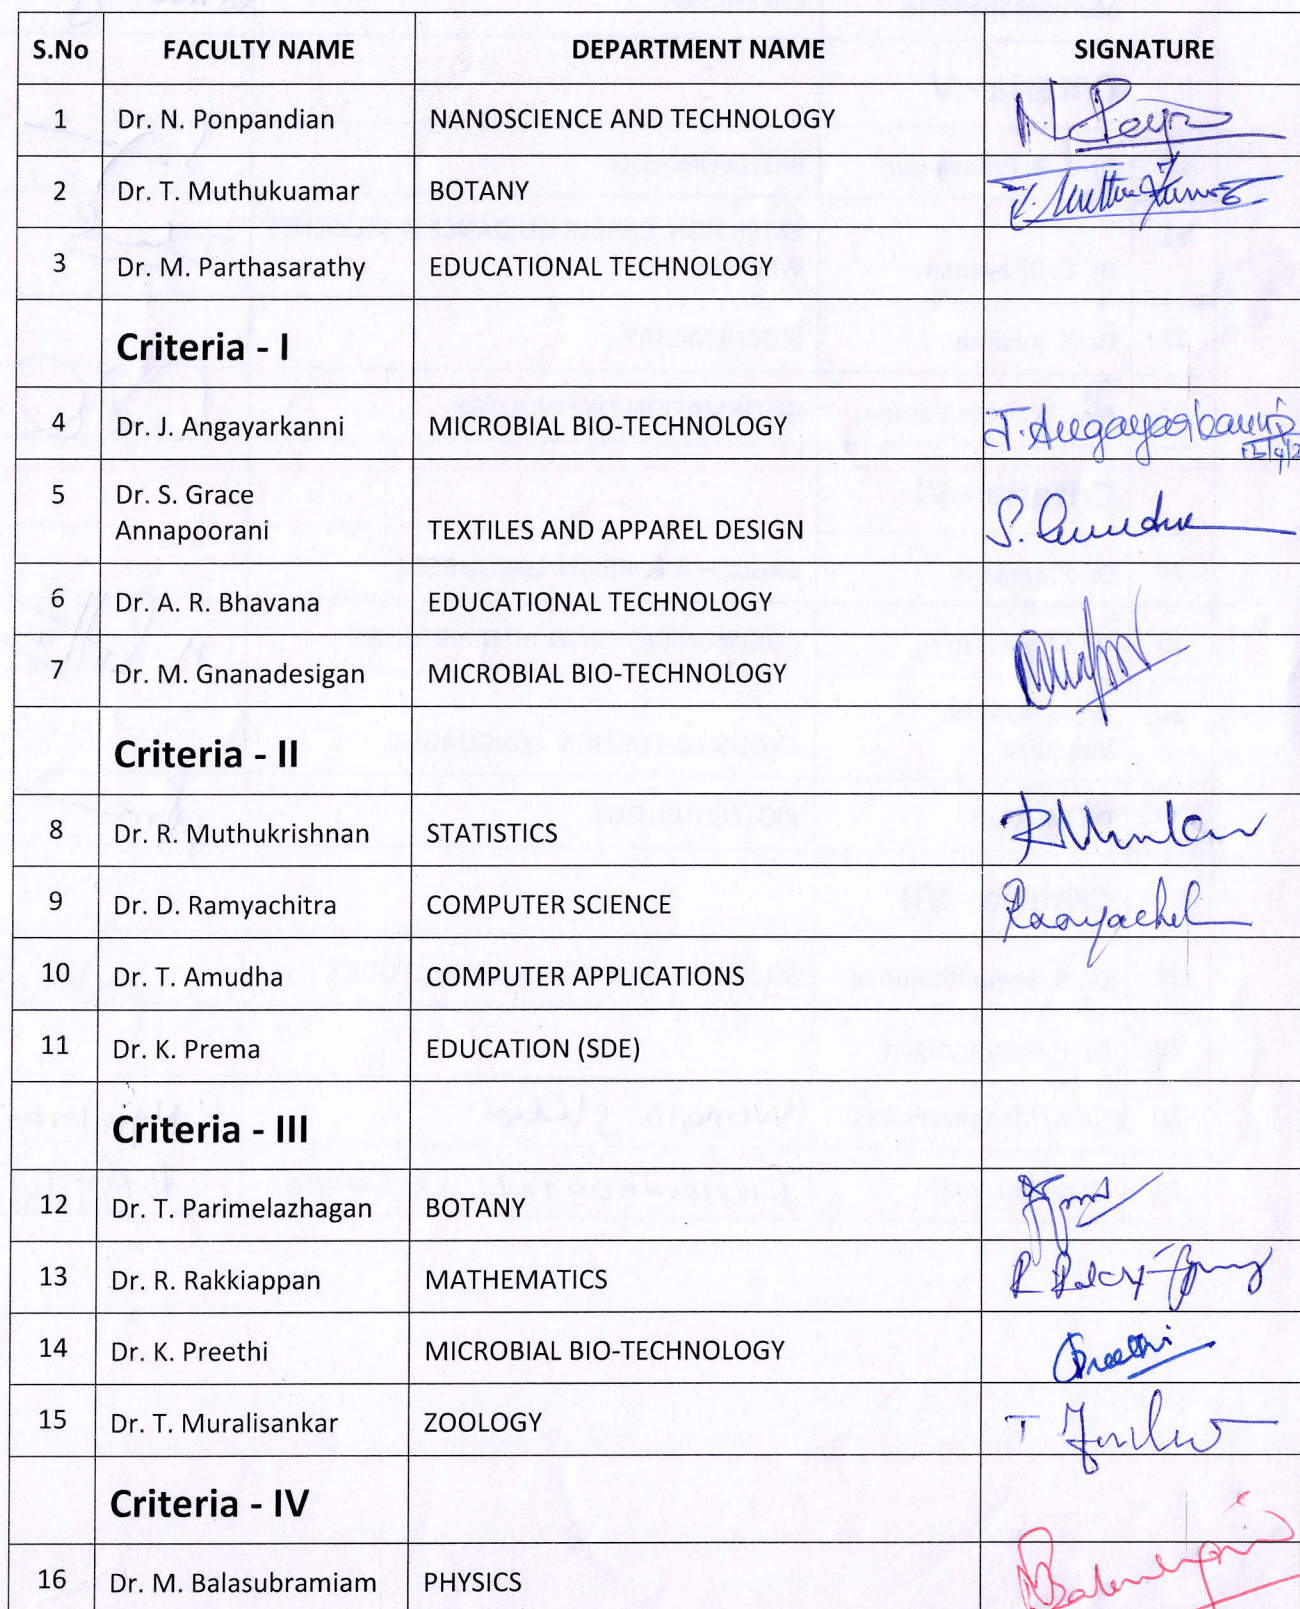 S.No FACULTY NAME DEPARTMENT NAME SIGNATURE
1 Dr. N. Ponpandian NANOSCIENCE AND TECHNOLOGY
2 Dr. T. Muthukuamar BOTANY
3 Dr. M. Parthasarathy EDUCATIONAL TECHNOLOGY
Criteria - I
4 Dr. J. Angayarkanni MICROBIAL BIO-TECHNOLOGY J. Angayarkanni
5 Dr. S. Grace
Annapoorani TEXTILES AND APPAREL DESIGN
6 Dr. A. R. Bhavana EDUCATIONAL TECHNOLOGY
7 Dr. M. Gnanadesigan MICROBIAL BIO-TECHNOLOGY
Criteria - II
8 Dr. R. Muthukrishnan STATISTICS
9 Dr. D. Ramyachitra COMPUTER SCIENCE
10 Dr. T. Amudha COMPUTER APPLICATIONS
11 Dr. K. Prema EDUCATION (SDE)
Criteria - III
12 Dr. T. Parimelazhagan BOTANY
13 Dr. R. Rakkiappan MATHEMATICS
14 Dr. K. Preethi MICROBIAL BIO-TECHNOLOGY Preethi
15 Dr. T. Muralisankar ZOOLOGY
Criteria - IV
16 Dr. M. Balasubramiam PHYSICS